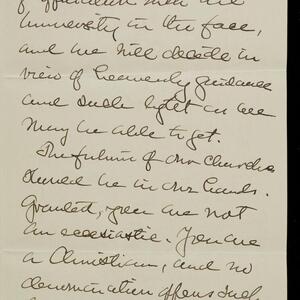 men are
University in the face,
and we will decide in
view of heavenly guidance
and such light as we
may be able to get.
The future of our churches
should be in our hands.
Granted, you are not
an ecclesiastic. You are
a Christian, and no
denomination offers such